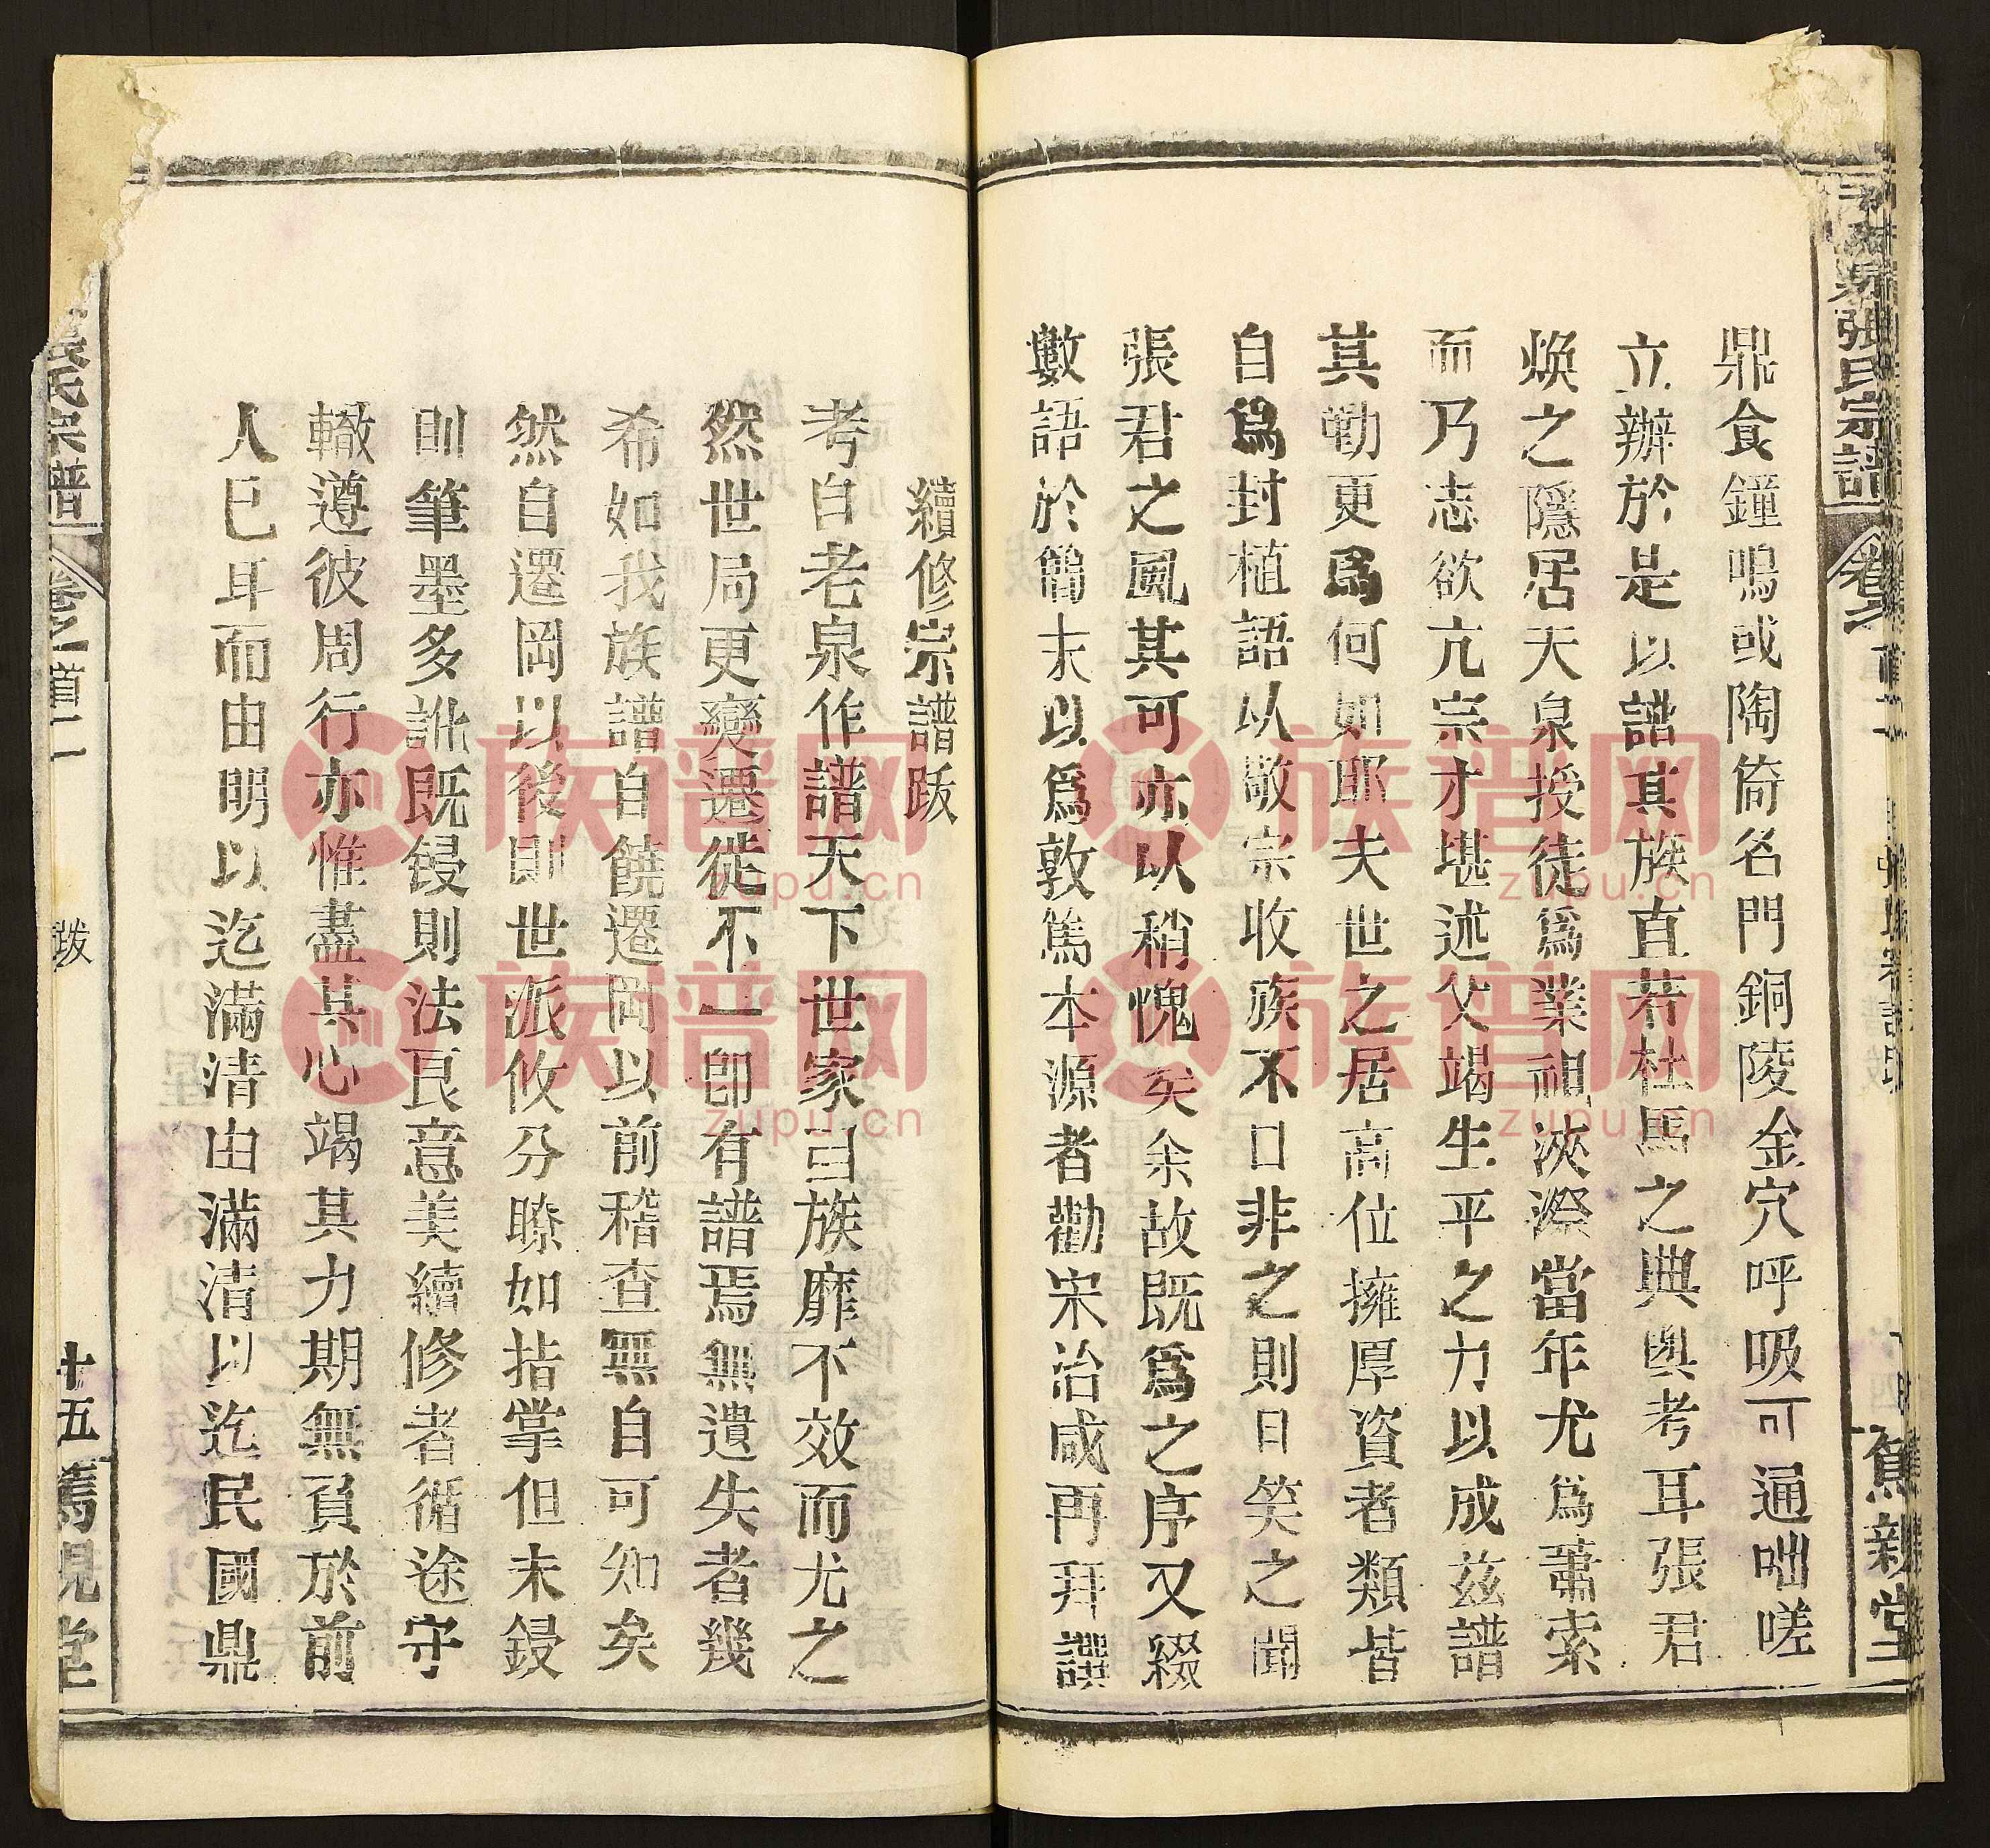 鼎食鐘鳴或陶倚名門銅陵金穴呼吸可通咄嗟
立辦於是以譜其族直若杜馬之典與考耳張君
煥之隱居天泉授徒爲業祖浹漈當年尤爲蕭索
而乃志欲亢宗才堪述父竭生平之力以成茲譜
其勤更爲何如耶夫世之居高位擁厚資者類昔
自爲封植語以敬宗收族不口非之則日笑之聞
張君之風其可亦以稍愧矣余故既爲之序又綴
數語於簡末以爲敦篤本源者勸宋治咸再拜譔
續修宗譜跋
考白老泉作譜天下世家巨族靡不效而尤之
然世局更變遷徙不一卽有譜焉無遺失者幾
希如我族譜自饒遷岡以前稽查無自可知矣
然自遷岡以後則世派攸分瞭如指掌但未鋟
則筆墨多訛既鋟則法良意美續修者循途守
轍遵彼周行亦惟盡其心竭其力期無負於前
人已耳而由明以迄滿清由滿清以迄民國鼎
張氏宗譜
卷
篤親堂
氏宗譜
卷之首二
跋
十五
堂
族谱网
zupu.cn
族谱网
zupu.cn
族谱网
zupu.cn
族谱网
zupu.cn